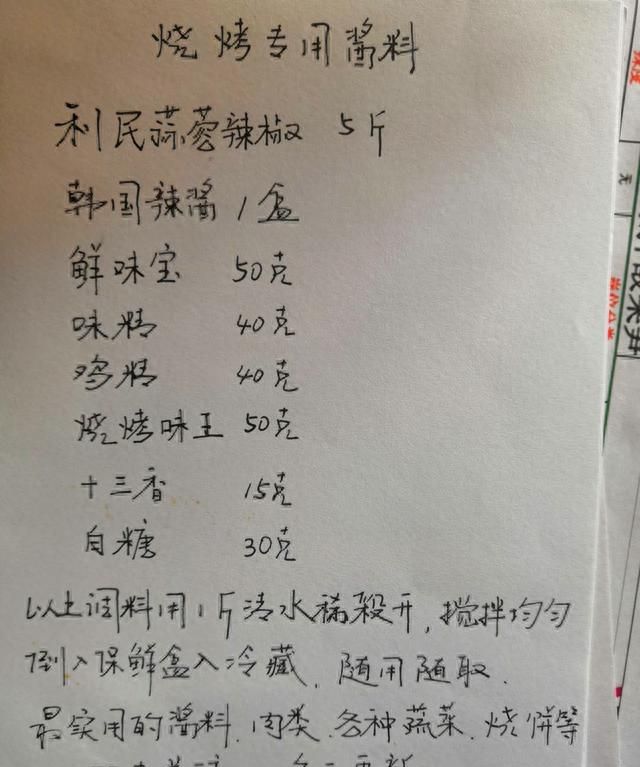 烧烤专用酱料
利民蒜蓉辣椒 5斤
韩国辣酱 1盒
鲜味宝 50克
味精 40克
鸡精 40克
烧烤味王 50克
十三香 15克
白糖 30克
以上调料用1斤清水稀殺开,搅拌均匀
倒入保鲜盒入冷藏.随用随取.
最实用的酱料.肉类.各种蔬菜.烧饼等
无